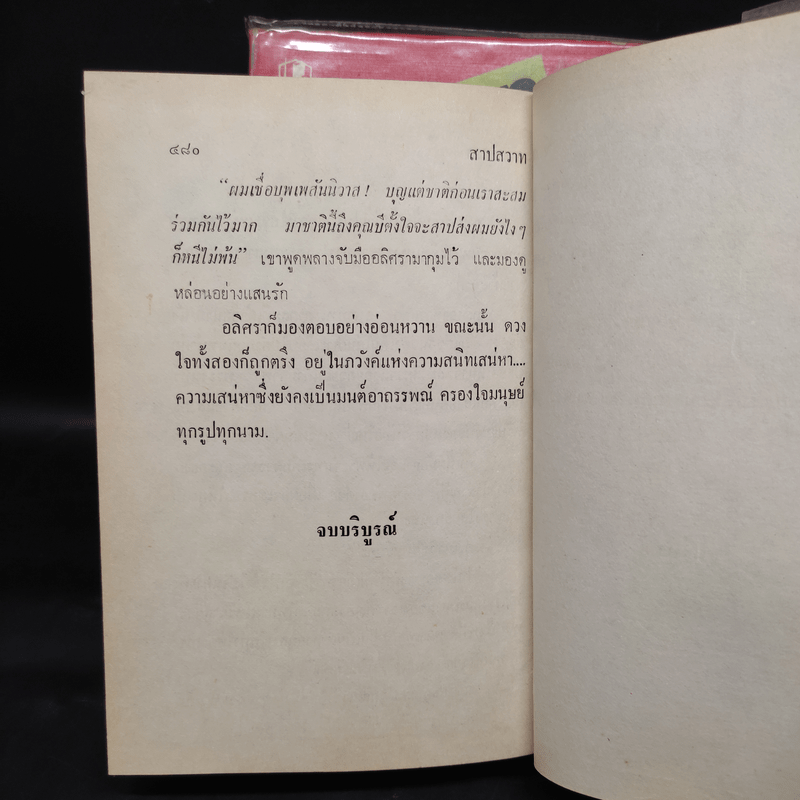 ๔๘๐ สาปสวาท
“ผมเชื่อบุพเพสันนิวาส ! บุญแต่ชาติก่อนเราสะสม
ร่วมกันไว้มาก มาชาตินี้ถึงคุณบีตั้งใจจะสาปส่งผมยังไงๆ
ก็หนีไม่พ้น” เขาพูดพลางจับมืออลิศรามากุมไว้ และมองดู
หล่อนอย่างแสนรัก
อลิศราก็มองตอบอย่างอ่อนหวาน ขณะนั้น ดวง
ใจทั้งสองก็ถูกตรึง อยู่ในภวังค์แห่งความสนิทเสน่หา....
ความเสน่หาซึ่งยังคงเป็นมนต์อาถรรพณ์ ครองใจมนุษย์
ทุกรูปทุกนาม.
จบบริบูรณ์